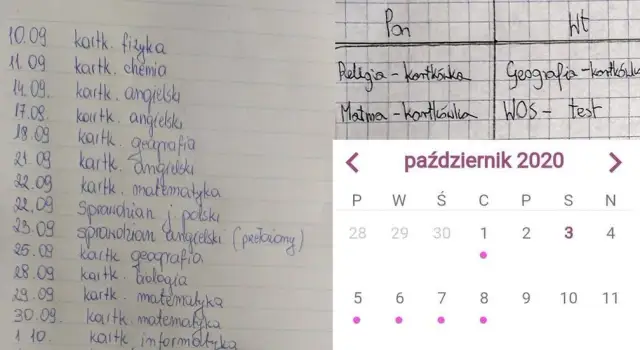 10.09 kartk. fizyka
11.09 kartk. chemia
14.09 kartk. angielski
17.09 kartk. angielski
18.09 kartk. geografia
21.09 kartk. angielski
22.09 kartk. matematyka
22.09 sprawdzian j. polski
23.09 sprawdzian angielski (przełożony)
25.09 kartk geografia
28.09 kartk. biologia
29.09 kartk. matematyka
30.09. kartk. matematyka
1 10. kartk. informatyka
Pon Wt
Religia - kartkówka Geografia - kartkówka
Matma - kartkówka WOS - test
październik 2020
P W Ś C P S N
28 29 30 1 2 3 4
5 6 7 8 9 10 11